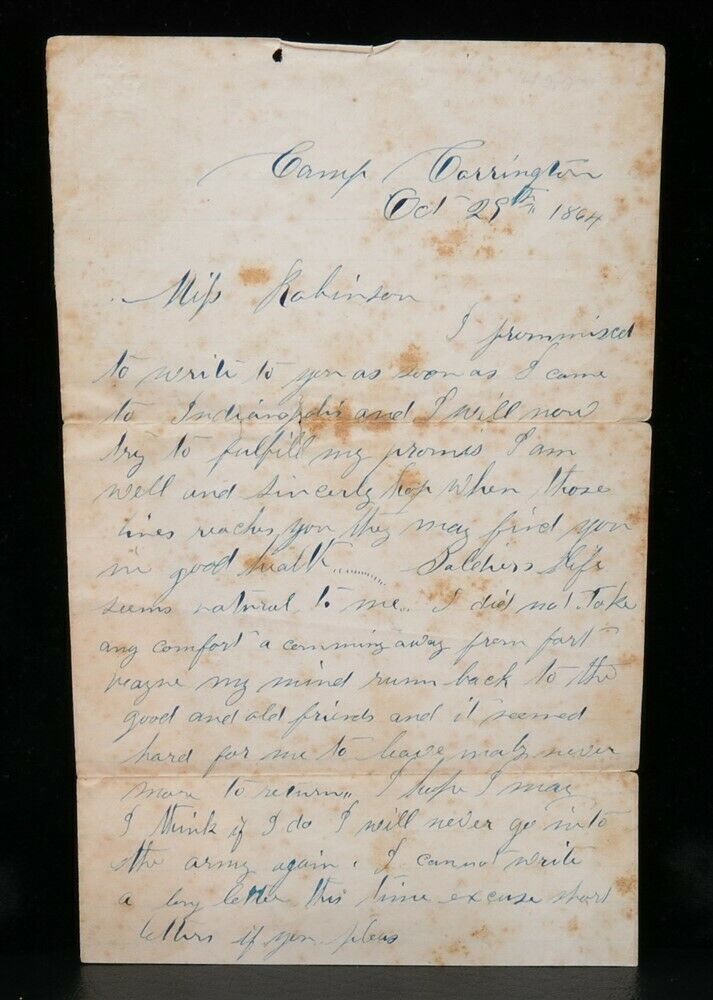 Camp Carrington
Oct 29th 1864
Miss Robinson
I prommised
to write to you as soon as I came
to Indianapolis and I will now
try to fulfill my promis I am
well and sincerly hop when those
lines reaches you they may find you
in good health Soldiers Life
seems natural to me. I did not take
any comfort a comming away from fort
wayne my mind runn back to the
good and old friends and it seemed
hard for me to leave never
more to return I hope I may
I think if I do I will never go into
the army again. I cannot write
a long letter this time excuse short
letters if you pleas